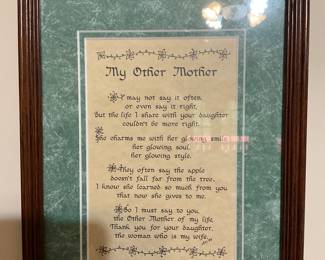 My Other Mother
I may not say it often
or even say it right,
But the life I share with your daughter
couldn't be more right.
She charms me with her glowing smile
her glowing soul,
her glowing style.
They often say the apple
doesn't fall far from the tree.
I know she learned so much from you
that now she gives to me.
So I must say to you,
the Other Mother of my life,
Thank you for your daughter,
the woman who is my wife.